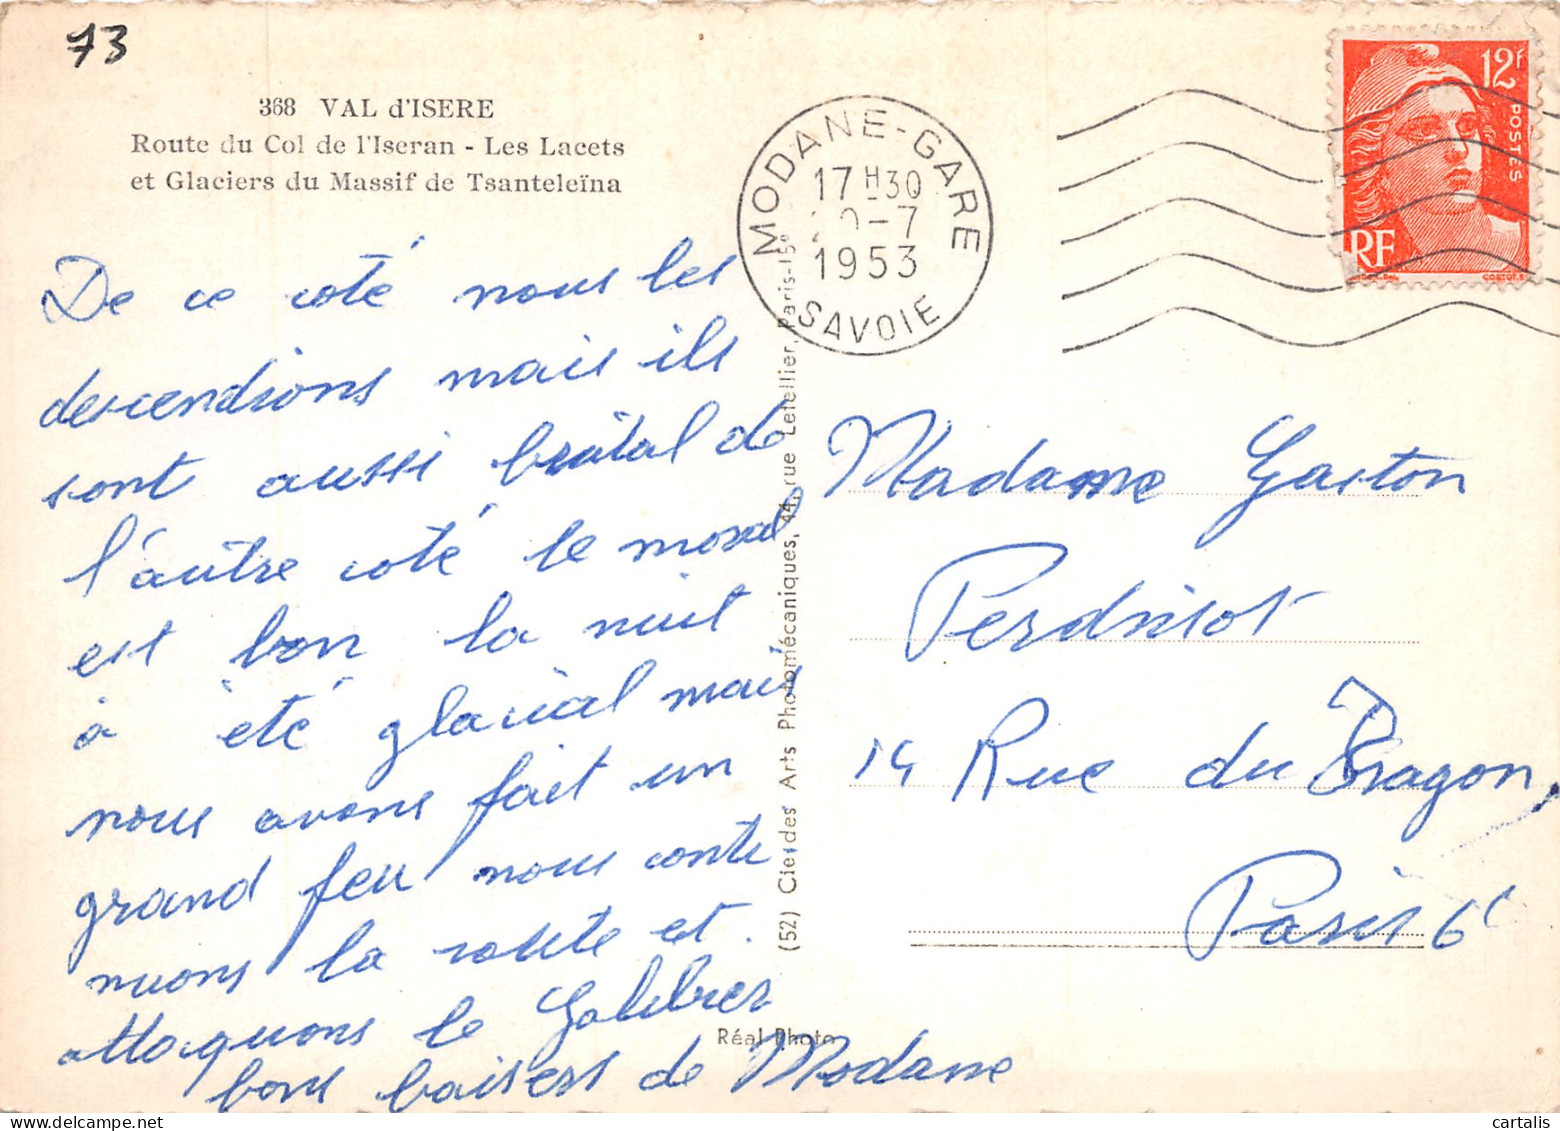 73
368 VAL d'ISERE
Route du Col de l'Iseran - Les Lacets
et Glaciers du Massif de Tsanteleïna
De ce coté nous les
descendions mais ils
sont aussi brutal de
l'autre coté le moral
est bon la nuit
à été glacial mais
nous avons fait un
grand feu nous conti
nuons la route et
attaquons le Galibier
bons baisers de Modane
(52) Cie des Arts Photomécaniques, 44, rue Letellier, Paris-15e
Réal-Photo
MODANE-GARE
17H30
0-7
1953
SAVOIE
12F
POSTES
RF
Madame Gaston
Perdrisot
14 Rue du Dragon
Paris 6e
www.delcampe.net
cartalis